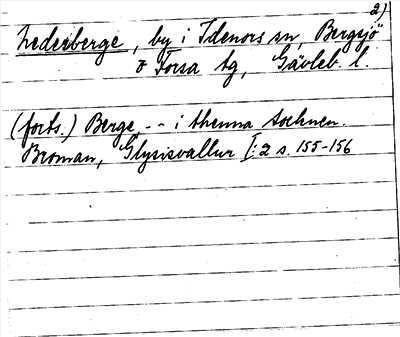 2)
Nederberge, by i Idenors sn, Bergsjö
o Forsa tg, Gävleb. l.
(forts.) Berge, -- i thenna sochnen.
Broman, Glysisvallur I:2 s. 155-156